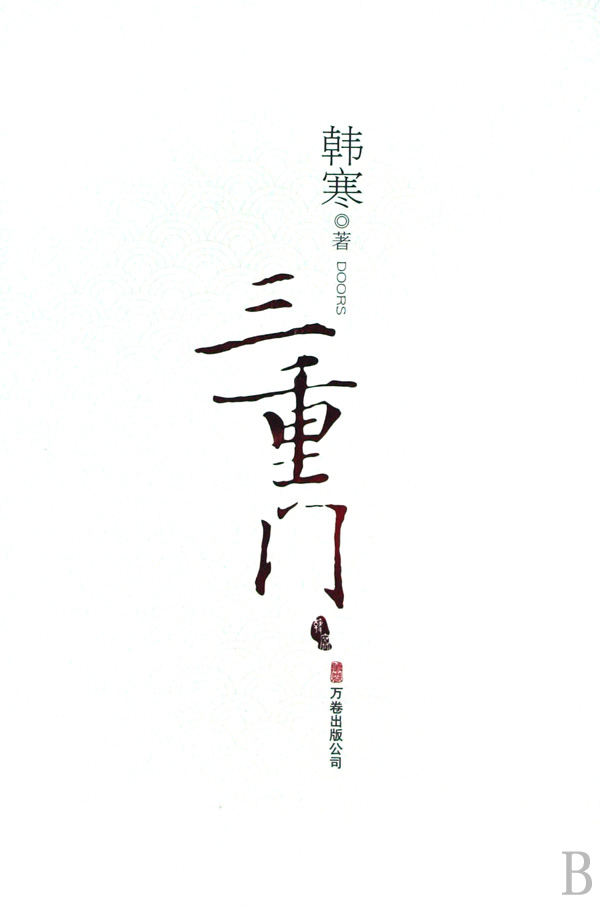 韩寒◎著
DOORS
三重门
韩寒
万卷出版公司
B